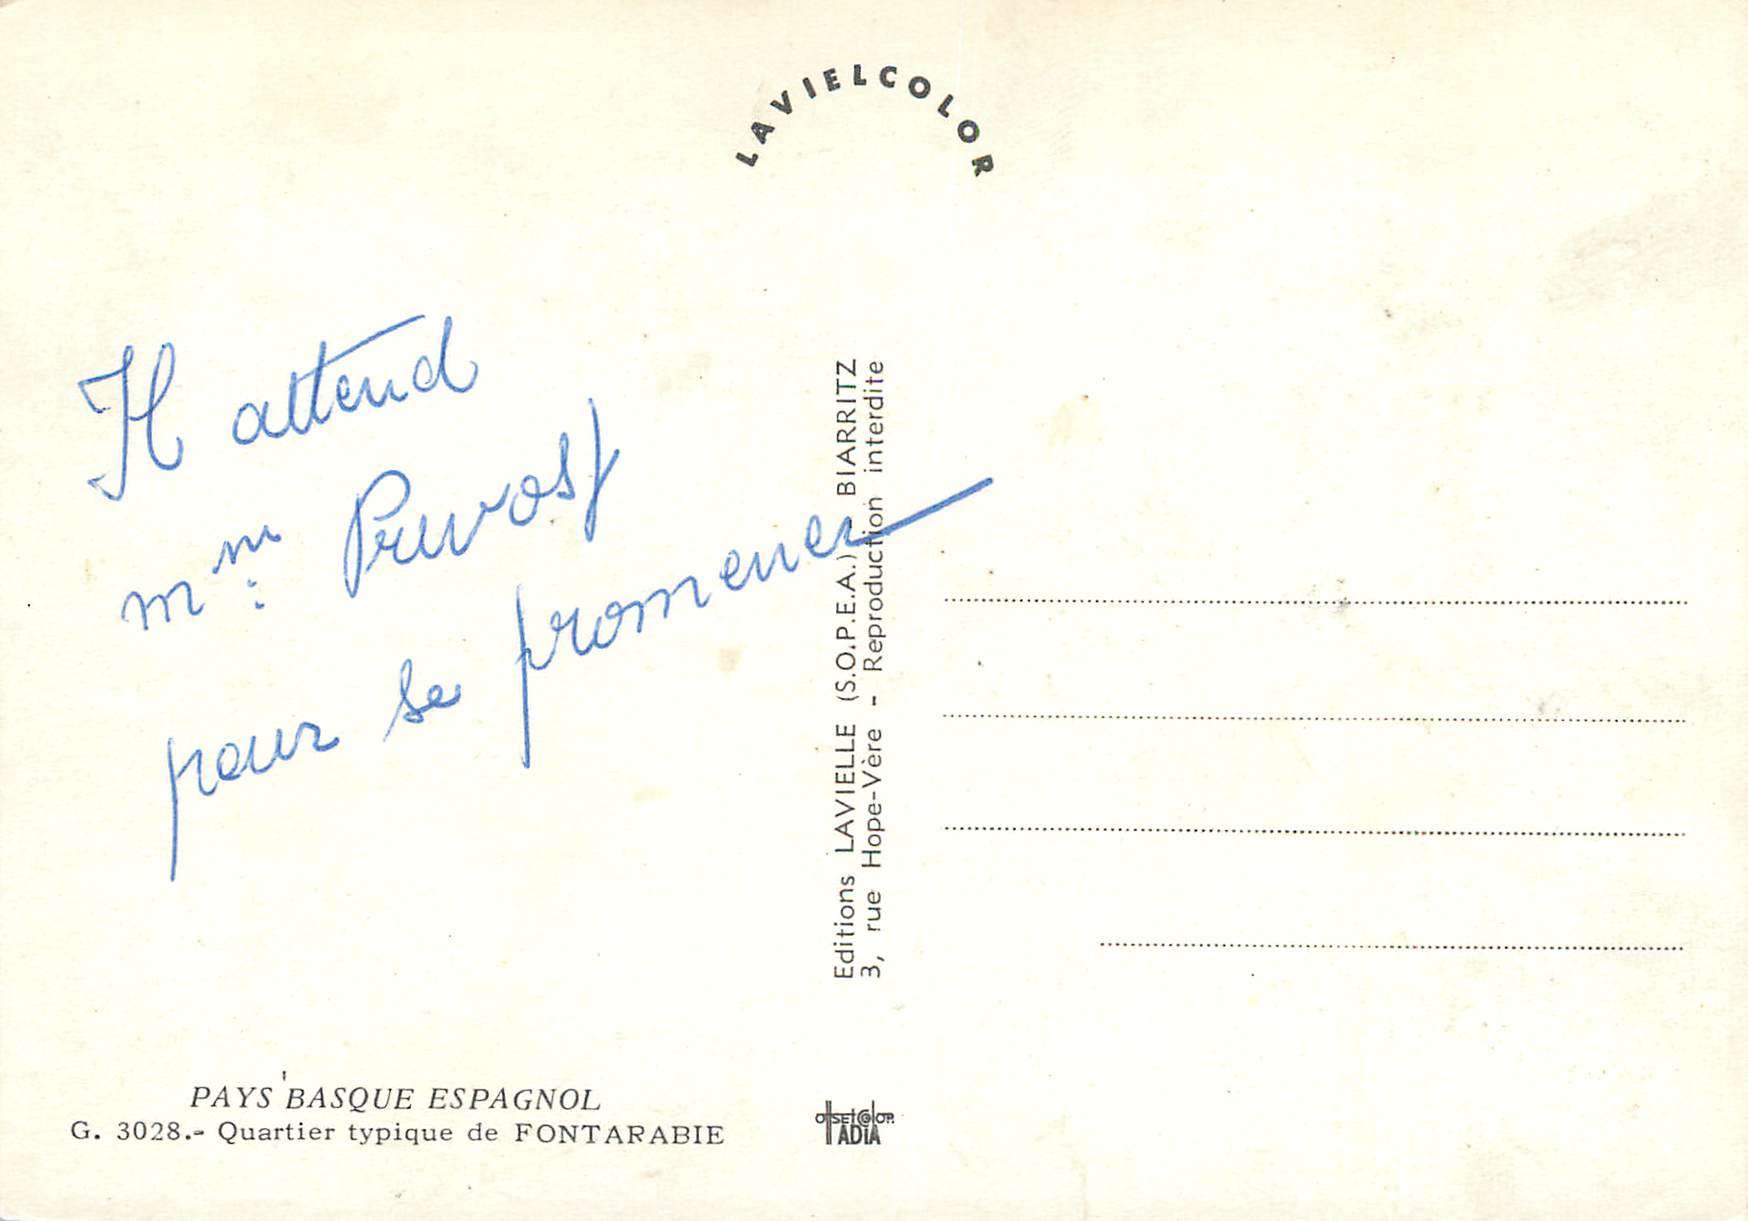 LAVIELCOLOR
Il attend
Mme Prevost
pour se promener
Editions LAVIELLE (S.O.P.E.A.) BIARRITZ
3, rue Hope-Vère - Reproduction interdite
PAYS BASQUE ESPAGNOL
G. 3028.- Quartier typique de FONTARABIE
offset color
ADIA